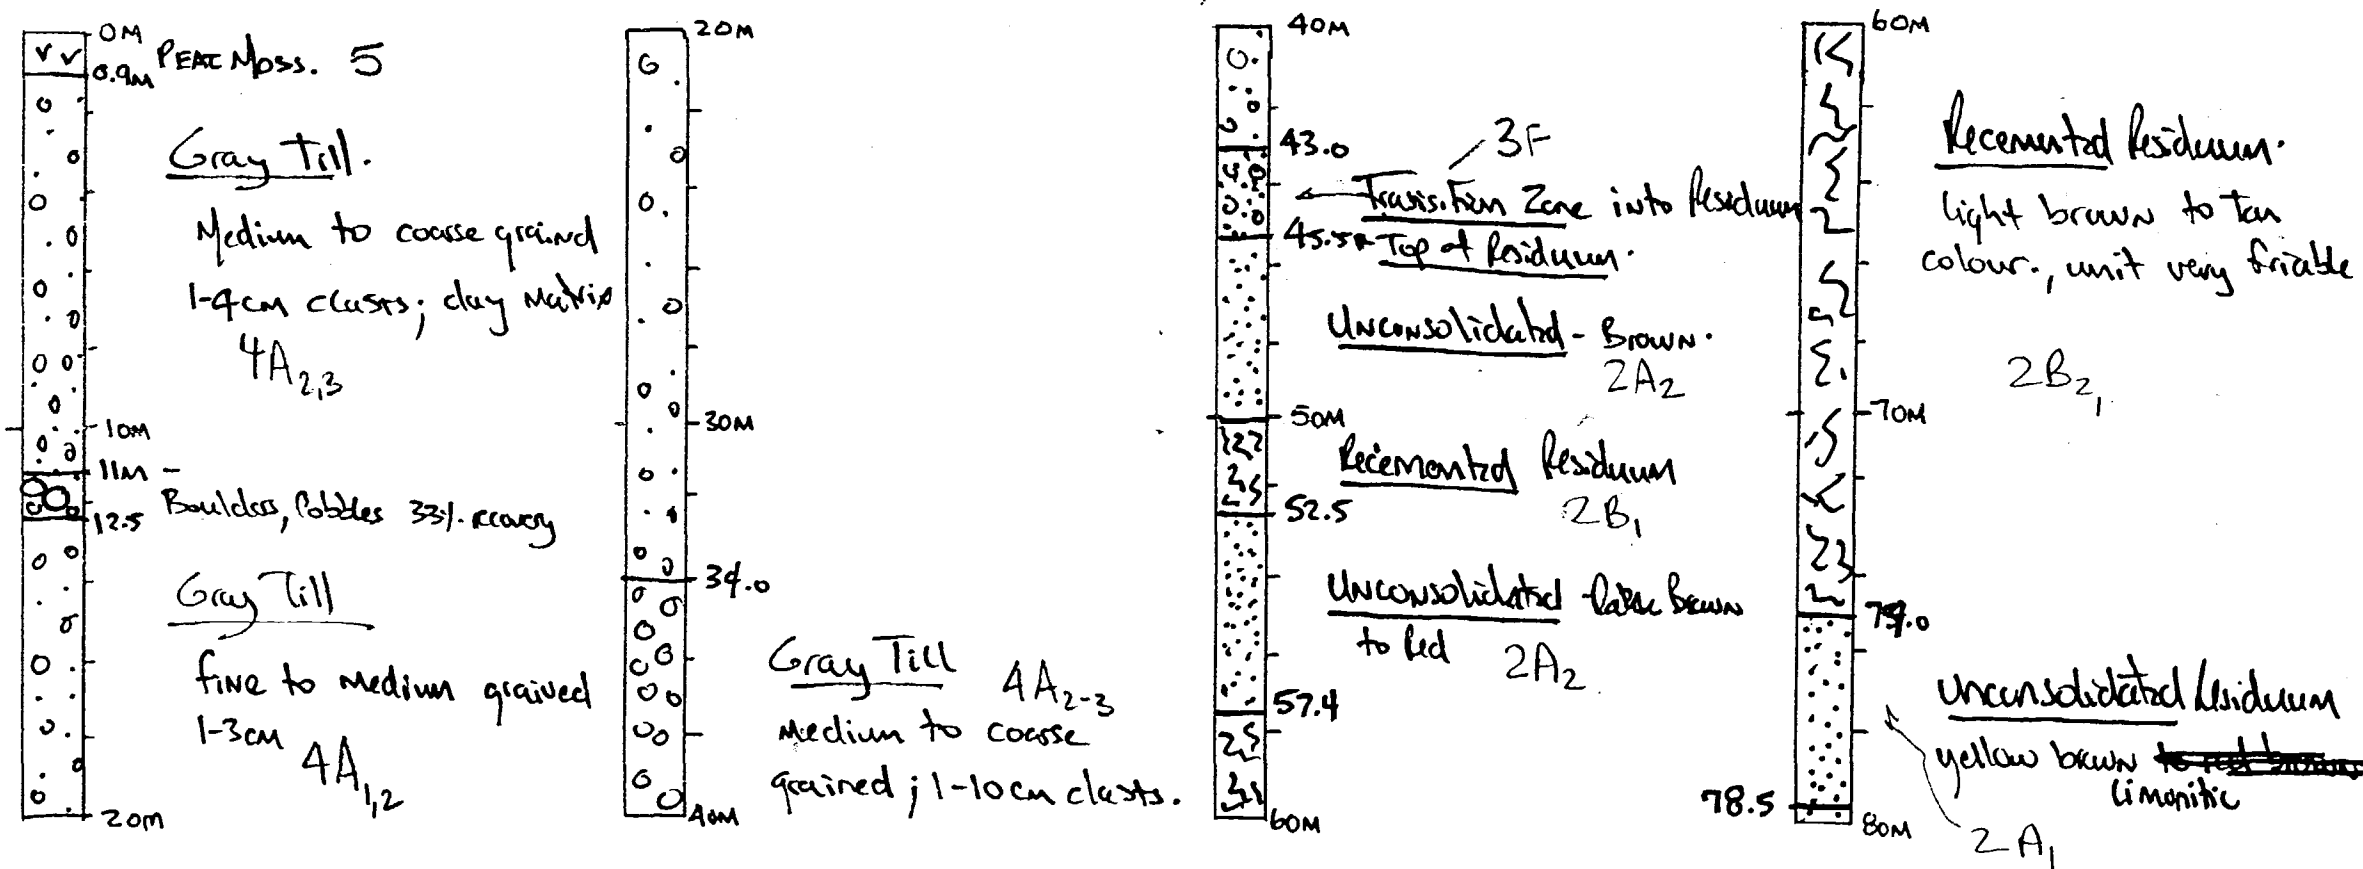 0M
PEAT Moss. 5
0.9M
Gray Till.
Medium to coarse grained
1-4cm clasts; clay Matrix
4A2,3
10M
11M -
Boulders, Cobbles 33% recovery
12.5
Gray Till
fine to medium grained
1-3cm
4A1,2
20M
20M
30M
34.0
Gray Till 4A2-3
Medium to coarse
grained; 1-10cm clasts.
40M
40M
43.0
3F
Transition Zone into Residuum
45.5 Top of Residuum.
Unconsolidated - Brown.
2A2
50M
Recemented Residuum
2B1
52.5
Unconsolidated - Brown
to Red 2A2
57.4
60M
60M
Recemented Residuum.
light brown to tan
colour., unit very friable
2B2,1
70M
.0
Unconsolidated Residuum
yellow brown
limonitic
78.5
80M
2A1